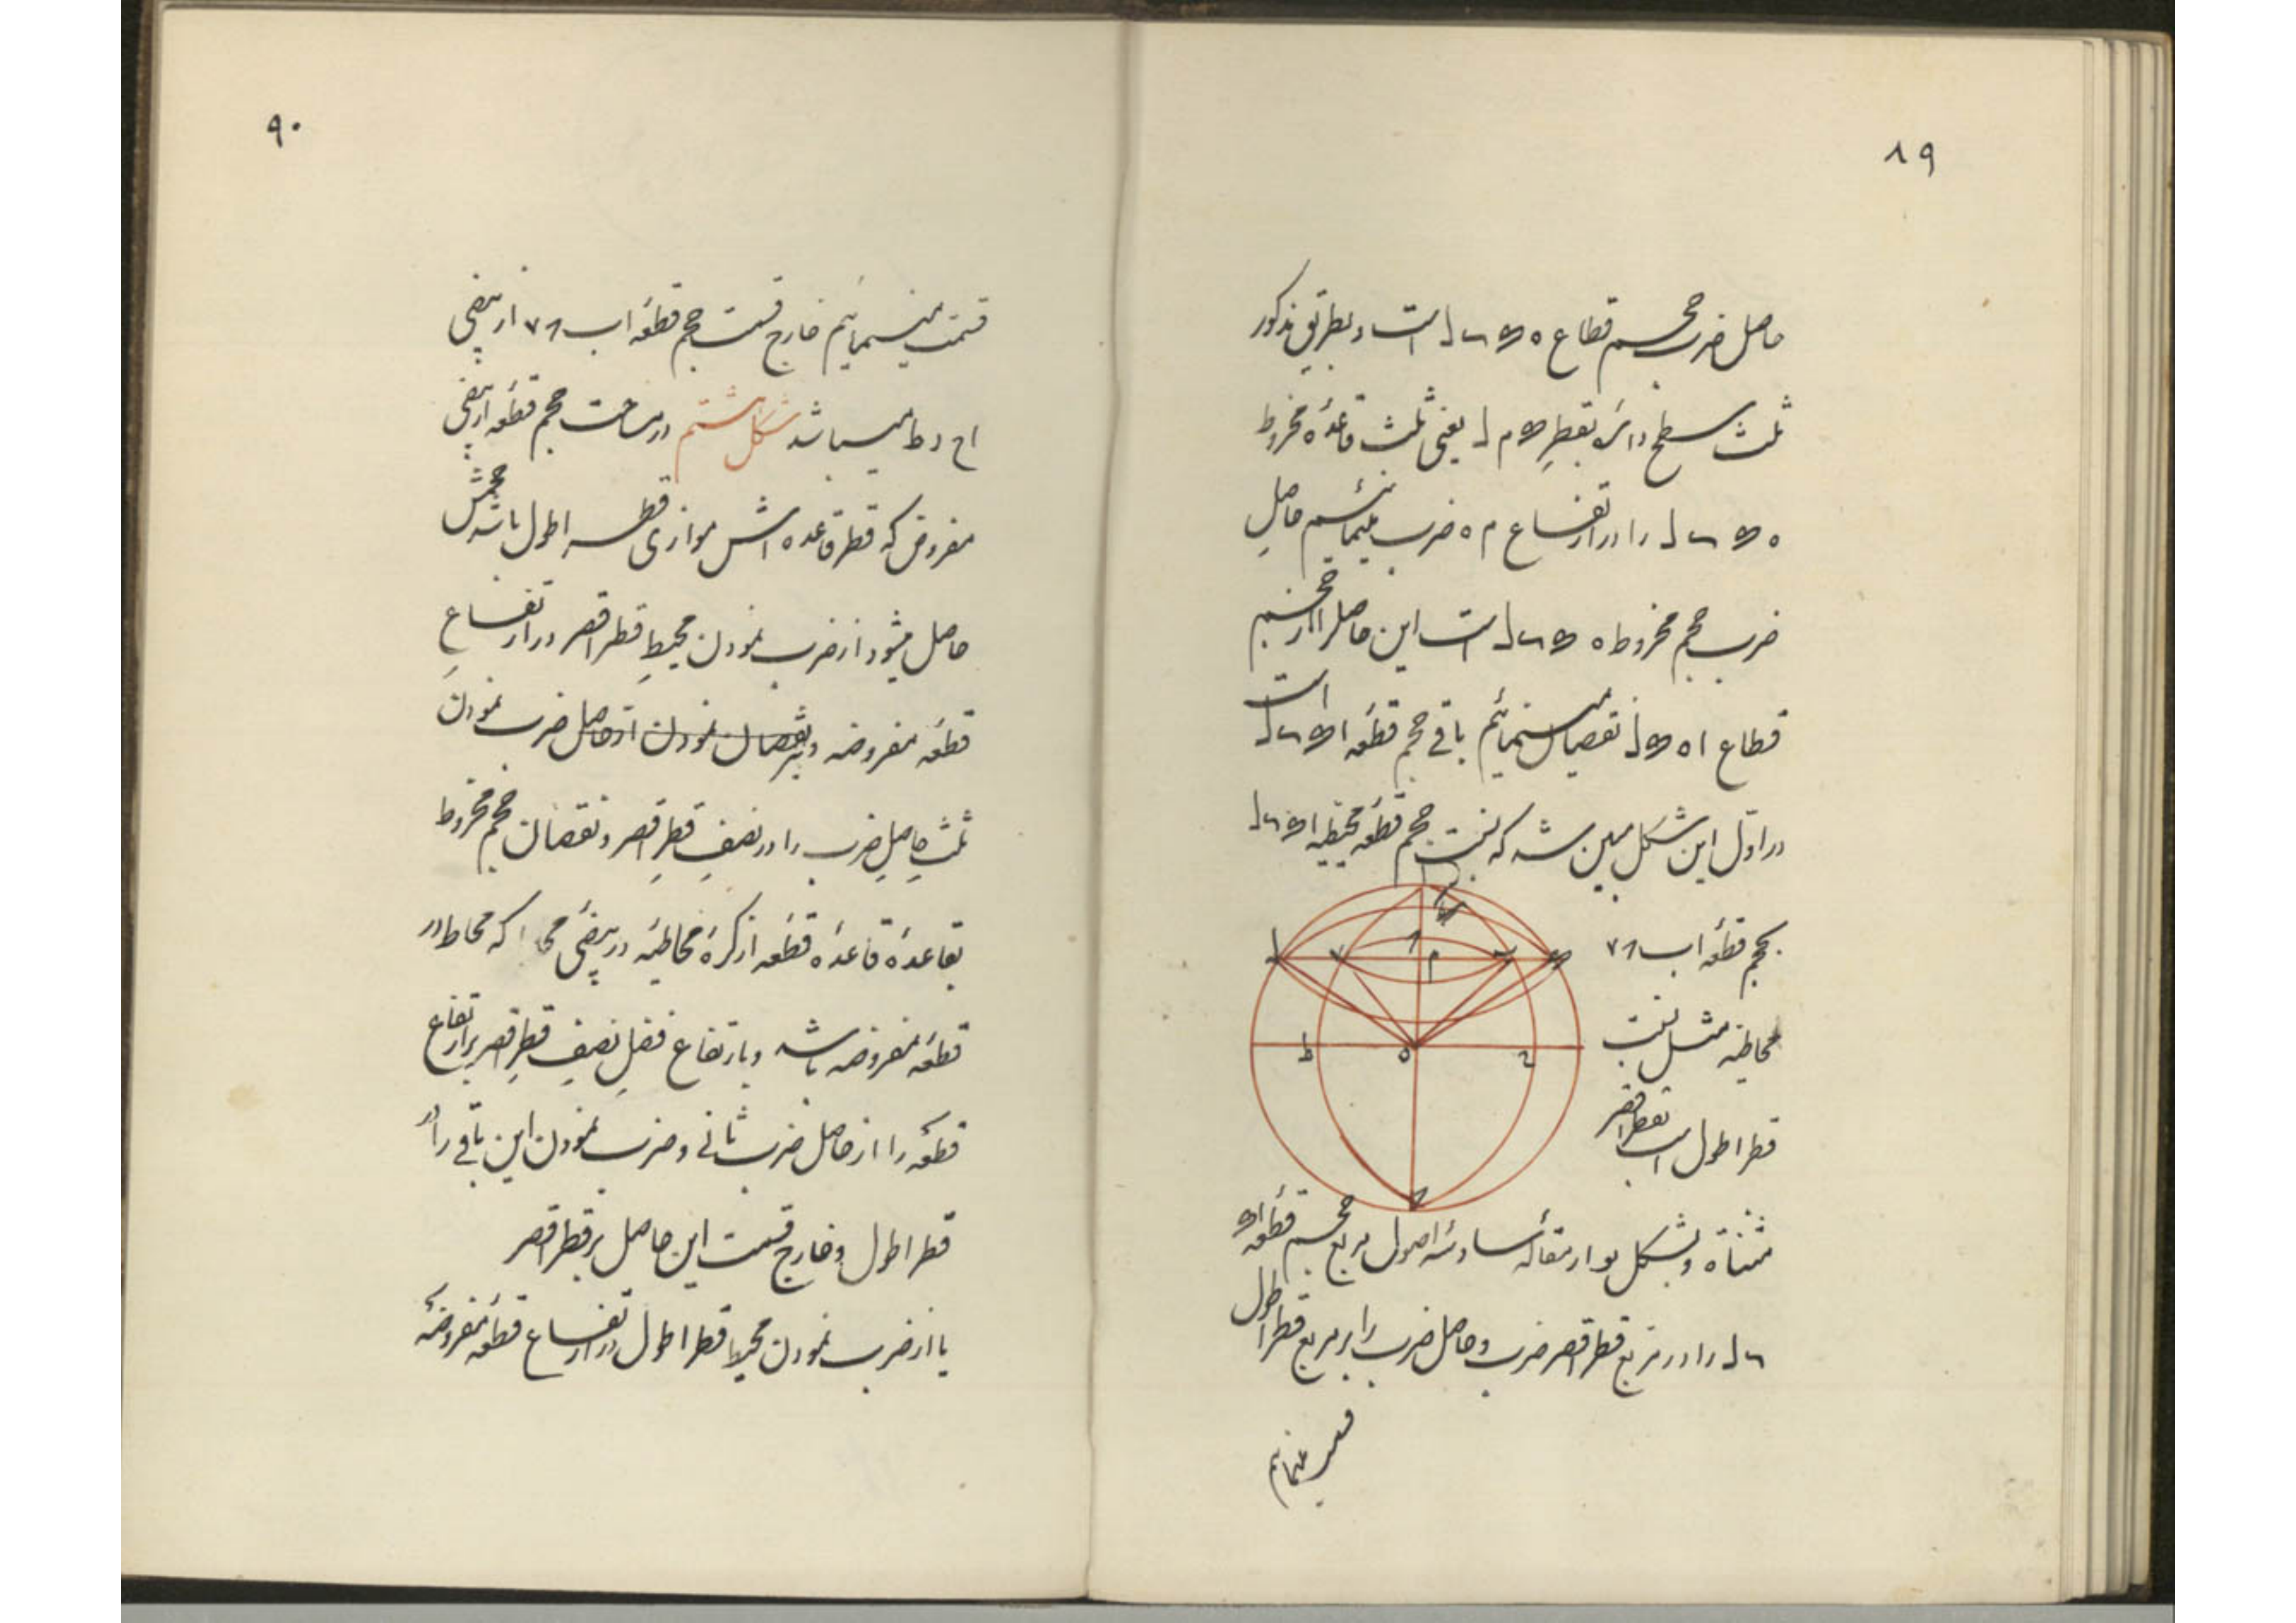 ۸۹
حاصل ضرب حجم قطاع ه است و بطریق مذکور
ثلث سطح دائرهٔ بقطر م ل یعنی ثلث قاعدهٔ مخروط
ه را در ارتفاع م ه ضرب مینمائیم حاصل
ضرب حجم مخروط ه است این حاصل را از حجم
قطاع ا ه نقصان مینمائیم باقی حجم قطعهٔ است
در اول این شکل مبین شد که نسبت حجم قطعهٔ محیطیه
بحجم قطعهٔ اب
محاطیه مثل نسبت
قطر اطول است بقطر اقصر
مثناة و بشکل یو از مقالهٔ سادسهٔ اصول مربع حجم قطعهٔ
را در مربع قطر اقصر ضرب و حاصل ضرب را بر مربع قطر اطول
قسمت مینمائیم
۹۰
قسمت مینمائیم خارج قسمت حجم قطعهٔ اب از بیضی
اح ر ط میباشد شکل ششم در مساحت حجم قطعهٔ از بیضی
مفروض که قطر قاعده اش موازی قطر اطول باشد حجمش
حاصل میشود از ضرب نمودن محیط قطر اقصر در ارتفاع
قطعهٔ مفروضه و حاصل ضرب نمودن
ثلث حاصل ضرب را در نصف قطر اقصر و نقصان حجم مخروط
بقاعدهٔ قاعدهٔ قطعه از کرهٔ محاطیه در بیضی که محاط در
قطعهٔ مفروضه باشد و بارتفاع فضل نصف قطر اقصر بر ارتفاع
قطعه را از حاصل ضرب ثانی و ضرب نمودن این باقی را در
قطر اطول و خارج قسمت این حاصل بر قطر اقصر
یا از ضرب نمودن محیط قطر اطول در ارتفاع قطعهٔ مفروضه